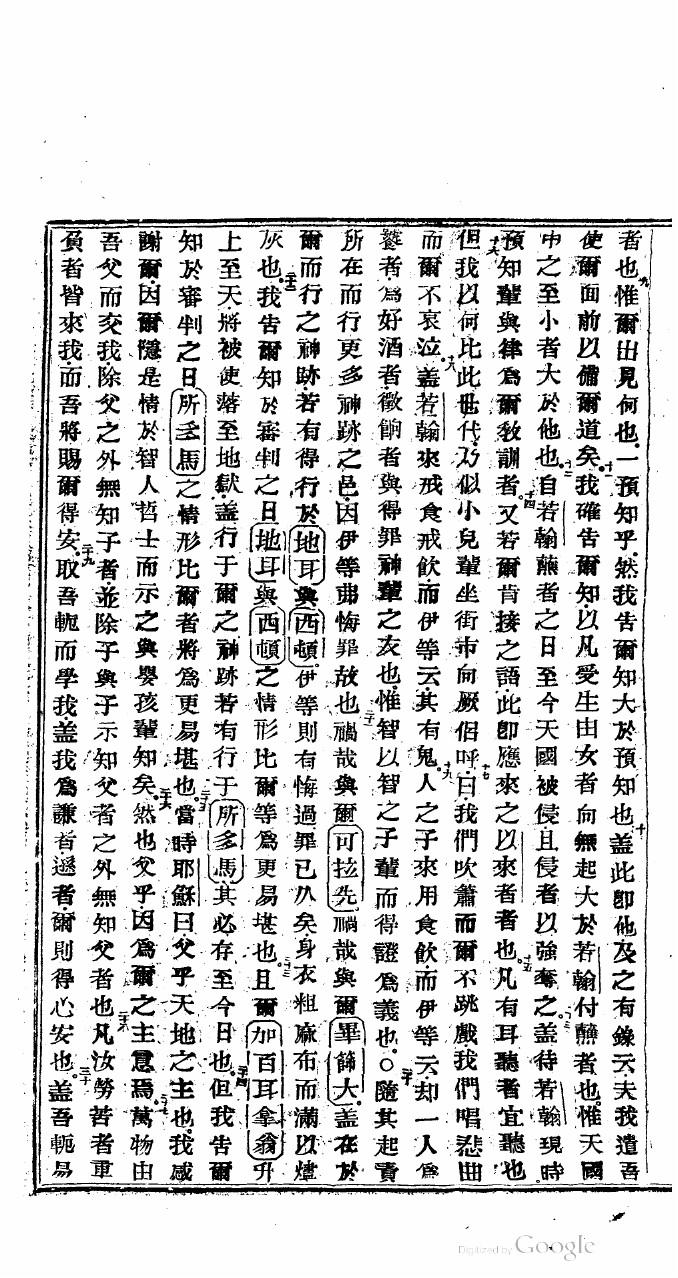 者也惟爾出見何也一預知乎然我告爾知大於預知也蓋此卽他及之有錄云夫我遣吾
使爾面前以備爾道矣我確告爾知以凡受生由女者向無起大於若翰付蘸者也惟天國
中之至小者大於他也自若翰蘸者之日至今天國被侵且侵者以強奪之蓋待若翰現時
預知輩與律爲爾敎訓者又若爾肯接之語此卽應來之以來者者也凡有耳聽者宜聽也
但我以何比此世代乃似小兒輩坐街市向厥侶呼曰我們吹簫而爾不跳戲我們唱悲曲
而爾不哀泣蓋若翰來戒食戒飲而伊等云其有鬼人之子來用食飲而伊等云却一人爲
饕者爲好酒者徵餉者與得罪神輩之友也惟智以智之子輩而得證爲義也○隨其起責
所在而行更多神跡之邑因伊等弗悔罪故也禍哉與爾可拉先禍哉與爾畢篩大蓋在於
爾而行之神跡若有得行於地耳與西頓伊等則有悔過罪已久矣身衣粗麻布而滿以爐
灰也我告爾知於審判之日地耳與西頓之情形比爾等爲更易堪也且爾加百耳拿翁升
上至天將被使落至地獄蓋行于爾之神跡若有行于所多馬其必存至今日也但我告爾
知於審判之日所多馬之情形比爾者將爲更易堪也當時耶穌曰父乎天地之主也我感
謝爾因爾隱是情於智人哲士而示之與嬰孩輩知矣然也父乎因爲爾之主意焉萬物由
吾父而交我除父之外無知子者並除子與子示知父者之外無知父者也凡汝勞苦者重
負者皆來我而吾將賜爾得安取吾軛而學我蓋我爲謙者遜者爾則得心安也蓋吾軛易
九
十
十一
十二
十三
十四
十五
十六
十七
十八
十九
二十
二十
二十二
二十三
二十四
二十五
二十六
二十七
二十八
二十九
三十
Digitized by Google